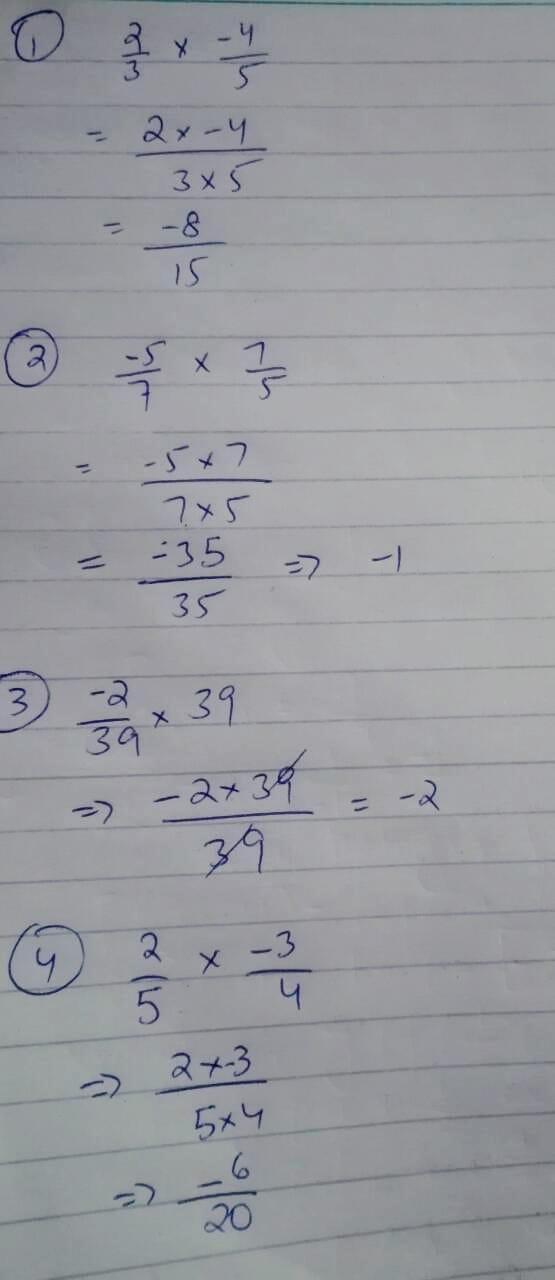 ① 2/3 × -4/5
= 2 × -4 / 3 × 5
= -8/15
② -5/7 × 7/5
= -5 × 7 / 7 × 5
= -35/35 ⇒ -1
③ -2/39 × 39
⇒ -2 × 39 / 39 = -2
④ 2/5 × -3/4
⇒ 2 × -3 / 5 × 4
⇒ -6/20